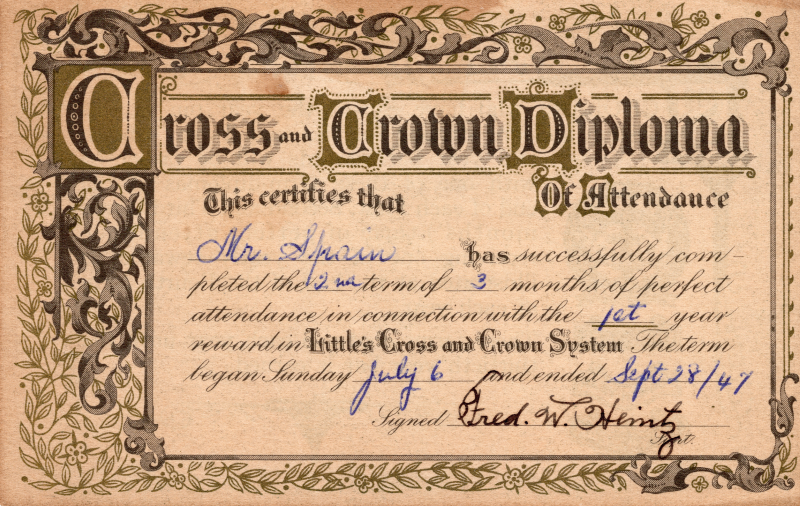 Cross and Crown Diploma
This certifies that Of Attendance
Mr. Spain has successfully com-
pleted the 2nd term of 3 months of perfect
attendance in connection with the 1st year
reward in Little's Cross and Crown System The term
began Sunday July 6 and ended Sept 28/47
Signed Fred. W. Heintz
Supt.